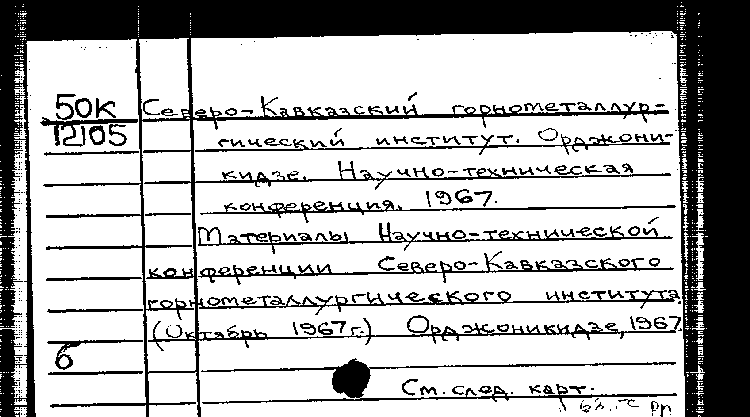 50к Северо-Кавказский горнометаллур-
12105 гический институт. Орджони-
кидзе. Научно-техническая
конференция. 1967.
Материалы Научно-технической
конференции Северо-Кавказского
горнометаллургического института
(Октябрь 1967г.) Орджоникидзе, 1967
б
См. след. карт.